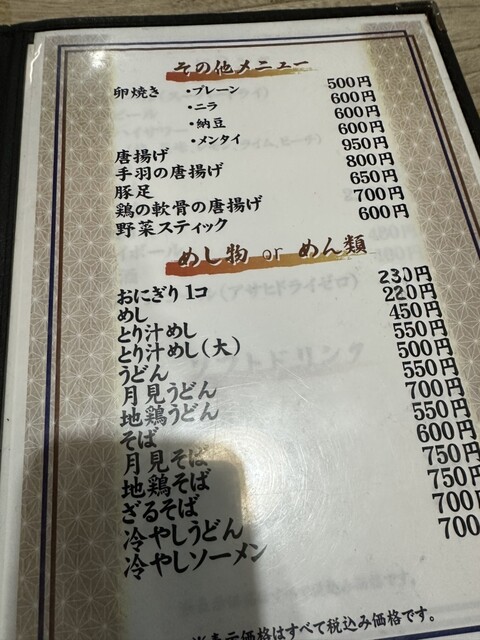 その他メニュー
卵焼き ・プレーン 500円
・ニラ 600円
・納豆 600円
・メンタイ 600円
唐揚げ 950円
手羽の唐揚げ 800円
豚足 650円
鶏の軟骨の唐揚げ 700円
野菜スティック 600円
めし物 or めん類
おにぎり1コ 230円
めし 220円
とり汁めし 450円
とり汁めし(大) 550円
うどん 500円
月見うどん 550円
地鶏うどん 700円
そば 550円
月見そば 600円
地鶏そば 750円
ざるそば 750円
冷やしうどん 700円
冷やしソーメン 700
※表示価格はすべて税込み価格です。